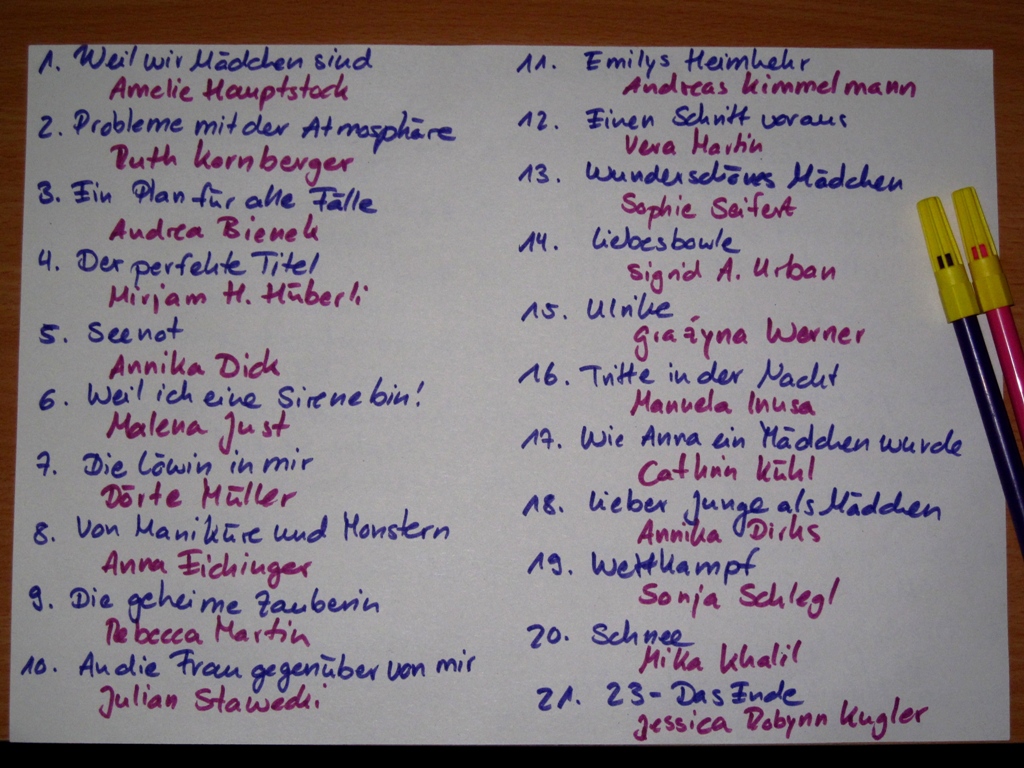 1. Weil wir Mädchen sind
Amelie Hauptstock
2. Probleme mit der Atmosphäre
Ruth Kornberger
3. Ein Plan für alle Fälle
Andrea Bienek
4. Der perfekte Titel
Mirjam H. Hüberli
5. Seenot
Annika Dick
6. Weil ich eine Sirene bin!
Malena Just
7. Die Löwin in mir
Dörte Müller
8. Von Maniküre und Monstern
Anna Eichinger
9. Die geheime Zauberin
Rebecca Martin
10. An die Frau gegenüber von mir
Julian Stawecki
11. Emilys Heimkehr
Andreas Kimmelmann
12. Einen Schritt voraus
Vera Martin
13. Wunderschönes Mädchen
Sophie Seifert
14. Liebesbowle
Sigrid A. Urban
15. Ulrike
Grażyna Werner
16. Tritte in der Nacht
Manuela Inusa
17. Wie Anna ein Mädchen wurde
Cathrin Kühl
18. Lieber Junge als Mädchen
Annika Dirks
19. Wettkampf
Sonja Schlegl
20. Schnee
Mika Khalil
21. 23 - Das Ende
Jessica Dobynn Kugler